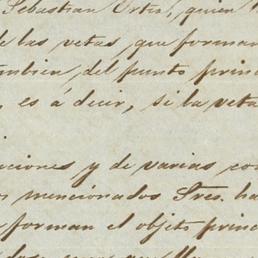 Sebastian Ortiz, quien
de las vetas, que forman
tambien, del punto princi
, es á decir, si la veta
ciones y de varias con
os mencionados Sres. ha
forman el objeto princ